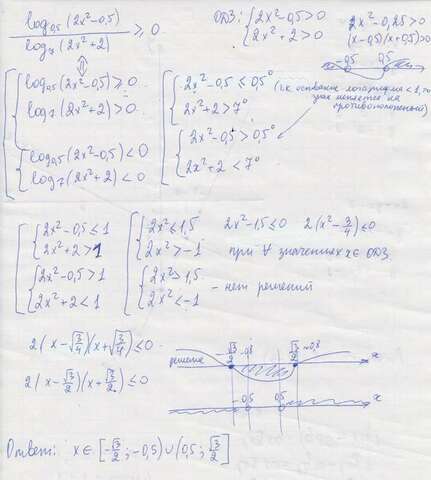 log₀,₅(2x²-0,5) / log₇(2x²+2) ≥ 0
ОДЗ: { 2x²-0,5>0
2x²+2>0
2x²-0,25>0
(x-0,5)(x+0,5)>0
-0,5 0,5
⇕
{ log₀,₅(2x²-0,5) ≥ 0
log₇(2x²+2) > 0
{ log₀,₅(2x²-0,5) < 0
log₇(2x²+2) < 0
{ 2x²-0,5 ≤ 0,5⁰
2x²+2 > 7⁰
{ 2x²-0,5 > 0,5⁰
2x²+2 < 7⁰
(т.к. основание логарифма < 1, то
знак меняется на
противоположный)
{ 2x²-0,5 ≤ 1
2x²+2 > 1
{ 2x²-0,5 > 1
2x²+2 < 1
{ 2x² ≤ 1,5
2x² > -1
{ 2x² > 1,5
2x² < -1
2x²-1,5 ≤ 0
2(x²-3/4) ≤ 0
при ∀ значениях x ∈ ОДЗ
- нет решений
2(x-√3/4)(x+√3/4) ≤ 0
2(x-√3/2)(x+√3/2) ≤ 0
решение
-√3/2 -0,8 √3/2 ~0,8 x
-0,5 0,5 x
Ответ: x ∈ [-√3/2; -0,5) ∪ (0,5; √3/2]